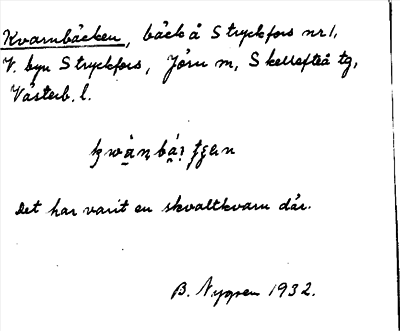 Kvarnbäcken, bäck å Stryckfors nr 1,
V. byn Stryckfors, Jörn sn, Skellefteå tg,
Västerb. l.
Det har varit en skvaltkvarn där.
B. Nygren 1932.